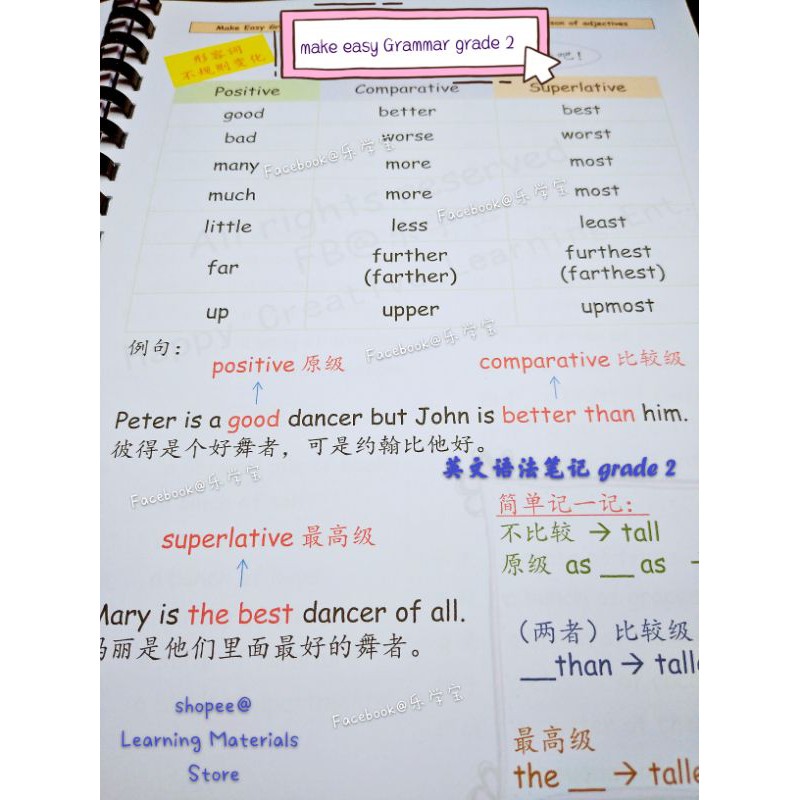 Make Easy
of adjectives
make easy Grammar grade 2
形容词
不规则变化
吧!
Positive Comparative Superlative
good better best
bad worse worst
many more most
much more most
little less least
far further (farther) furthest (farthest)
up upper upmost
Facebook@乐学宝
Facebook@乐学宝
All rights reserved
FB@
Happy Creative Learning Ent.
例句：
Facebook@乐学宝
positive 原级 comparative 比较级
Peter is a good dancer but John is better than him.
彼得是个好舞者，可是约翰比他好。
英文语法笔记 grade 2
Facebook@乐学宝
superlative 最高级
Mary is the best dancer of all.
丽是他们里面最好的舞者。
简单记一记：
不比较 → tall
原级 as __ as
（两者）比较级
__than → talle
最高级
the __ → talle
Facebook@乐学宝
shopee@
Learning Materials
Store